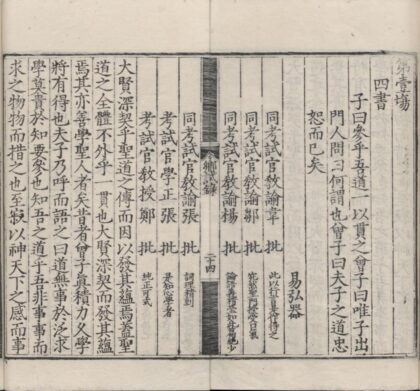 第壹場
四書
子曰參乎吾道一以貫之曾子曰唯子出
門人問曰何謂也曾子曰夫子之道忠
恕而已矣
易弘器
同考試官教諭韋 批
同考試官教諭鄒 批
同考試官教諭楊 批
鄉試錄
二十四
同考試官教諭張 批
詞理精到
考試官學正張 批
考試官教授鄭 批
純正可式
大賢深契乎聖道之傳而因以發其蘊焉蓋聖
道之全體不外乎一貫也大賢深契而發其蘊
焉其亦善學聖人者矣昔者曾子真積力久學
將有得也夫子乃呼而語之曰道無事於泛求
學莫貴於知要參也知吾之道乎吾非事事而
求之物物而措之也至寂以神天下之感而事